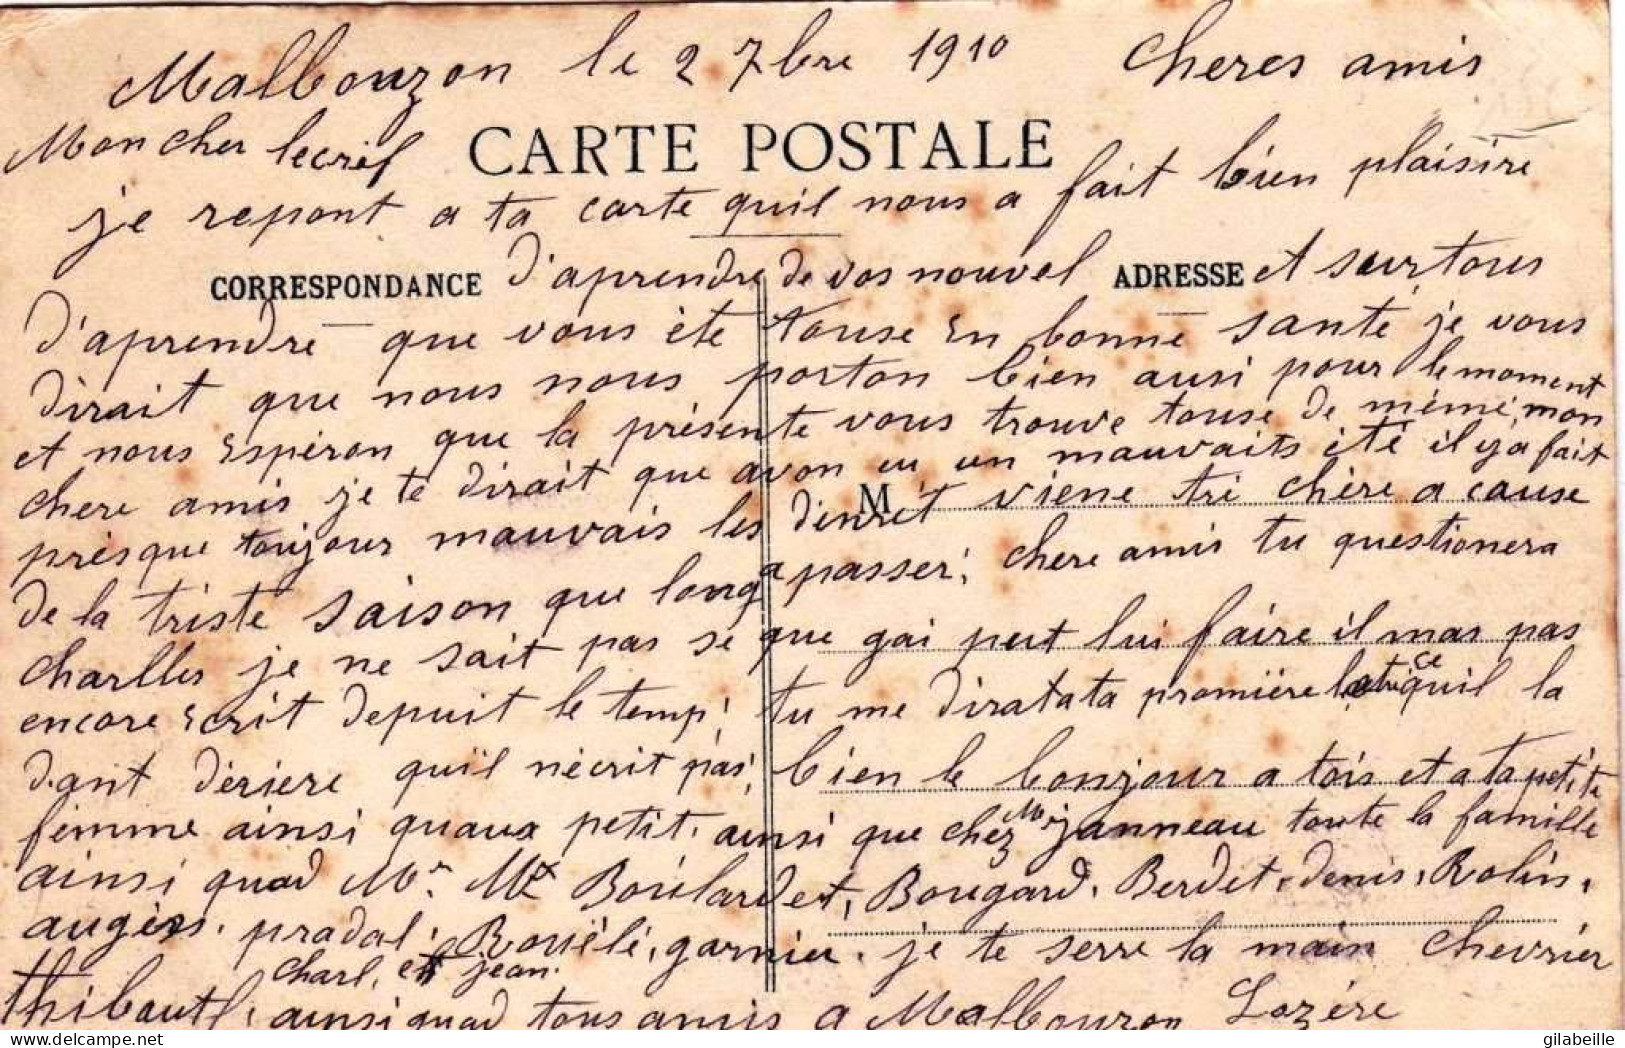 Malbouzon le 2 7bre 1910 Cheres amis
Mon cher lecrif
CARTE POSTALE
je repont a ta carte quil nous a fait bien plaisire
CORRESPONDANCE D'aprendre de vos nouvel ADRESSE et surtous
D'aprendre que vous ète touse en bonne santé je vous
dirait que nous nous porton bien ausi pour le moment
et nous espèron que la présente vous trouve touse de mème, mon
chere amis je te dirait que avon eu un mauvaits été il y a fait
près que toujour mauvais les denrèt M viene trè chère a cause
de la triste saison que long a passer; chere amis tu questionera
charlles je ne sait pas se que gai peut lui faire il mas pas
encore ecrit depuit le temp; tu me diratata promière ce quil la
dant dèriere quil nècrit pas; bien le bonjour a tois et a ta petite
femme ainsi quaux petit. ainsi que chez Mr janneau toute la famille
ainsi quad Mr. Boulardet, Bougard. Berdet. denis. Rolin.
augèrs. pradal. Rouèlè, garnier. je te serre la main Chevrier
charl. et jean.
Thibaut, ainsi quad tous amis a Malbouzon Lozère
gilabeille